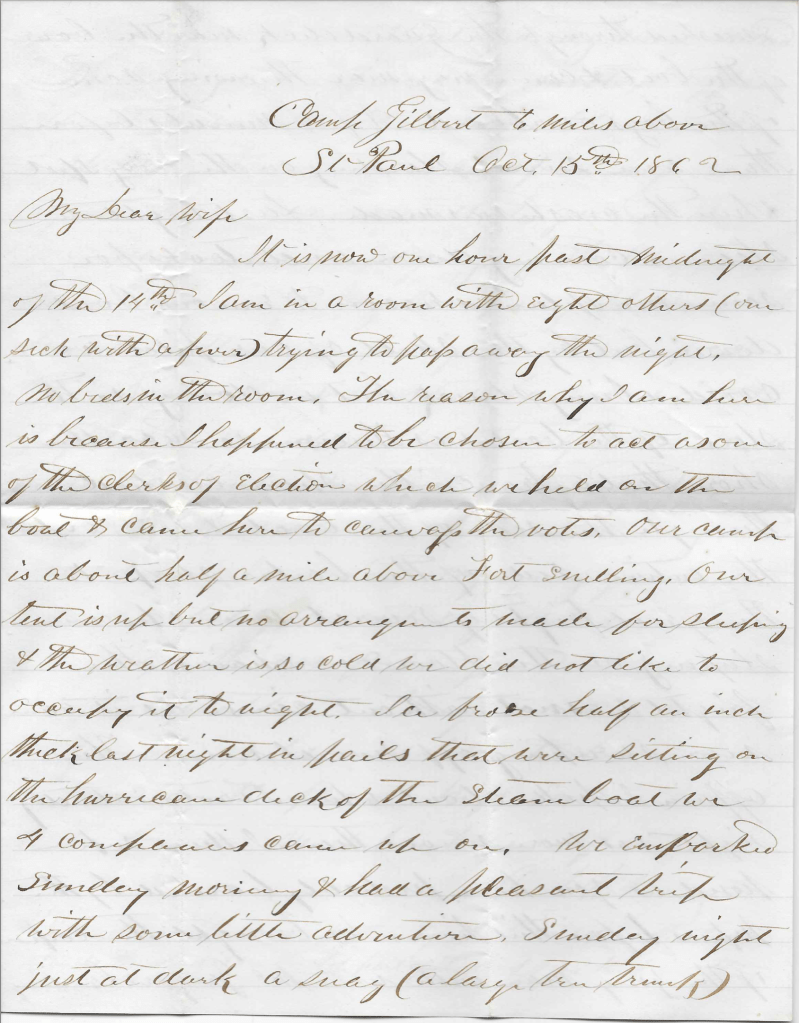 Camp Gilbert 6 miles above
St Paul Oct. 15th 1862
My Dear Wife
It is now one hour past midnight
of the 14th I am in a room with eight others (one
sick with a fever) trying to pass away the night.
No beds in the room. The reason why I am here
is because I happened to be chosen to act as one
of the clerks of Election which we held on the
boat & came here to canvass the votes. Our camp
is about half a mile above Fort Snelling. Our
tent is up but no arrangements made for sleeping
& the weather is so cold we did not like to
occupy it to night. Ice froze half an inch
thick last night in pails that were sitting on
the hurricane deck of the Steam boat we
4 companies came up on. We Embarked
Sunday morning & had a pleasant trip
with some little adventure. Sunday night
just at dark a snag (a large tree trunk)